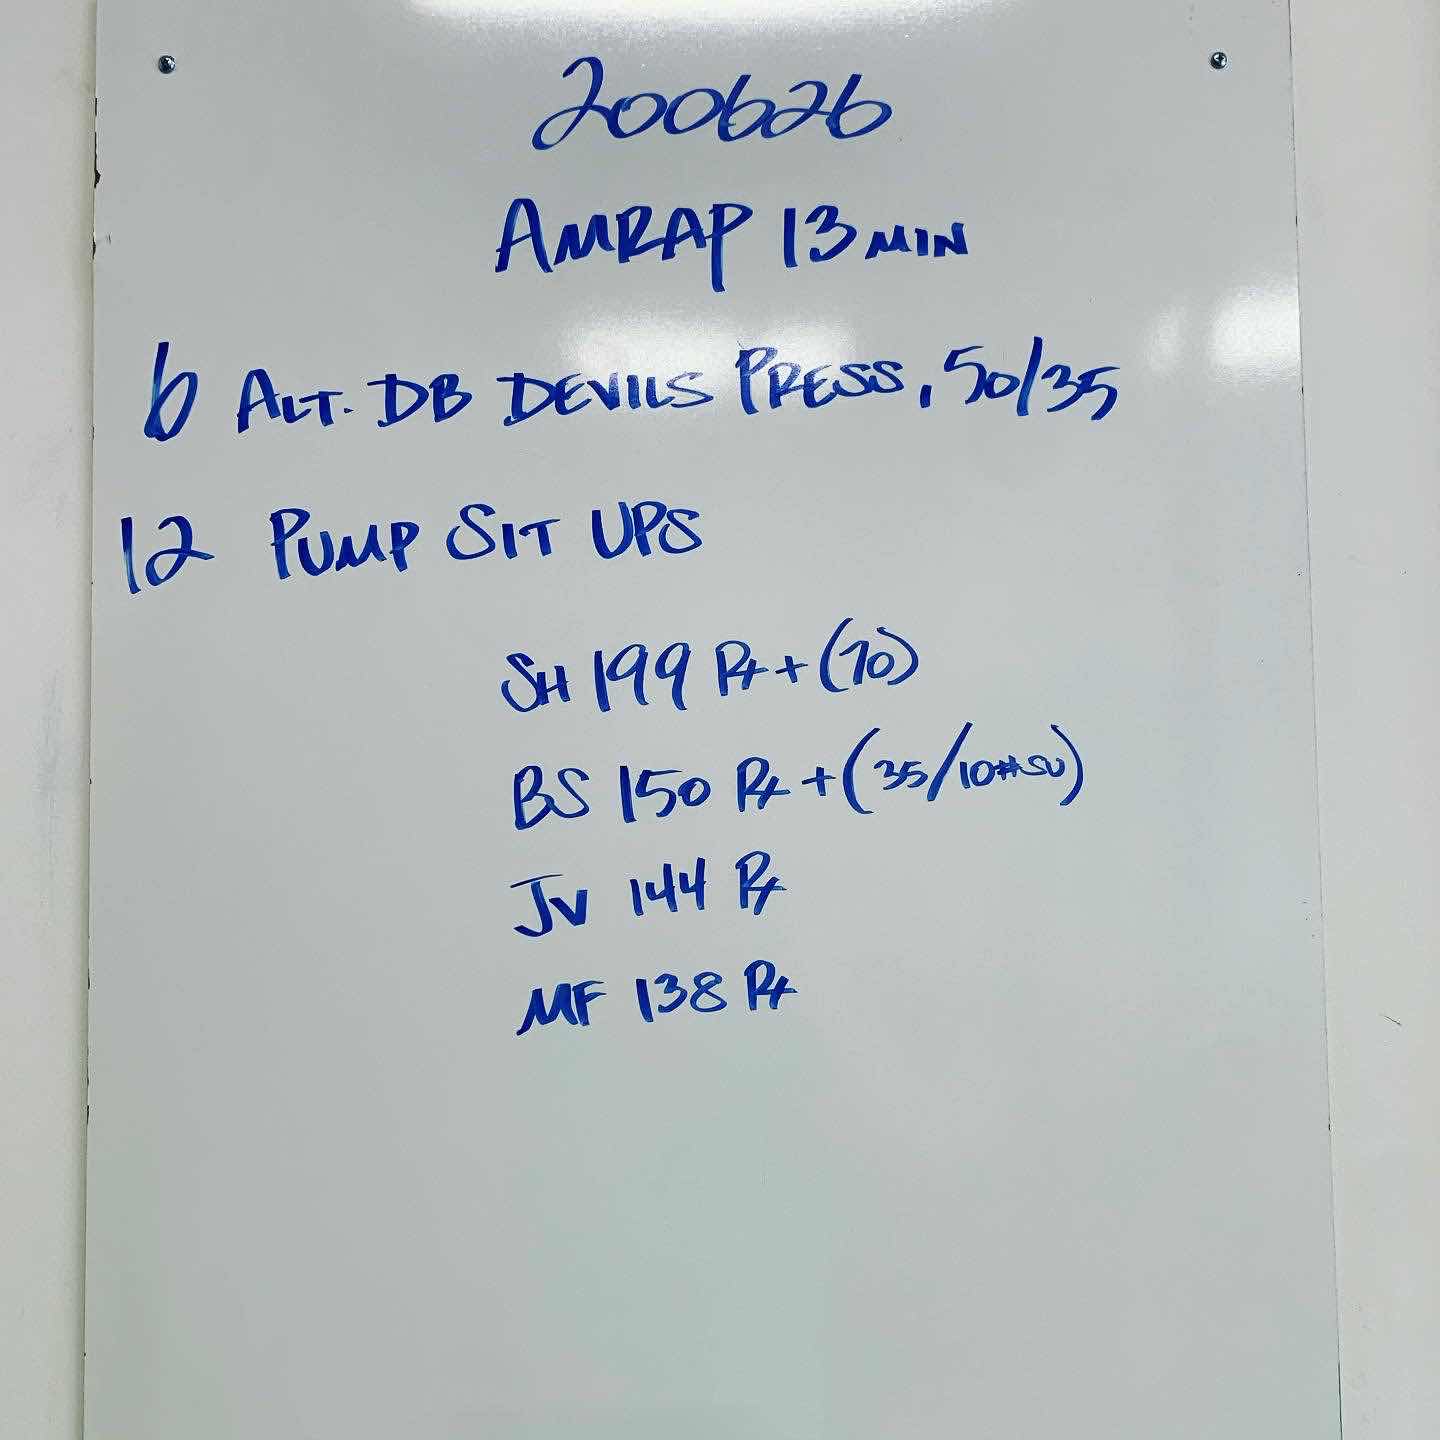 200626
AMRAP 13 MIN
6 ALT. DB DEVILS PRESS, 50/35
12 PUMP SIT UPS
SH 199 Rx + (70)
BS 150 Rx + (35/10#SU)
JV 144 Rx
MF 138 Rx